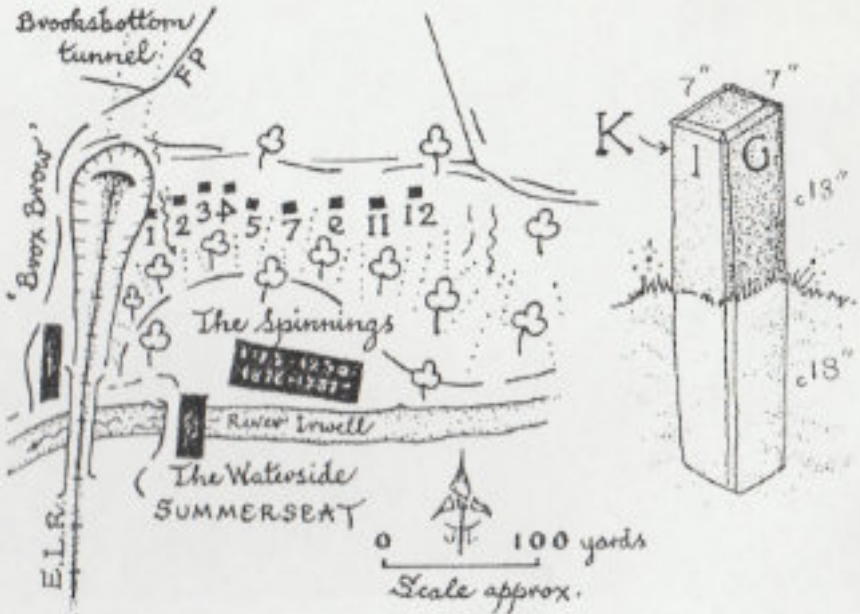 Brooksbottom
tunnel
FP
'Brox Brow'
1 2 3 4 5 7 e 11 12
The Spinnings
River Irwell
The Waterside
SUMMERSEAT
E.L.R.
J.T.
0 100 yards
Scale approx.
7" 7"
K
I G
c18"
c18"